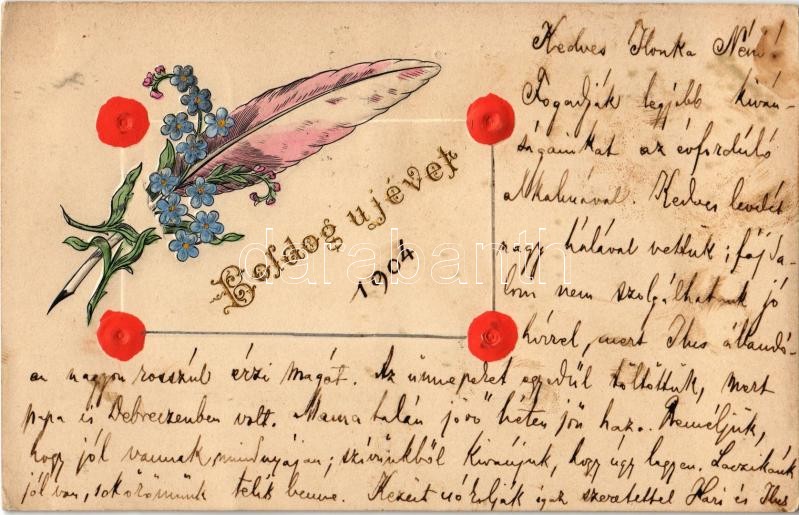 Kedves Ilonka Néni!
Fogadják legjobb kiván-
ságainkat az évforduló
alkalmával. Kedves levelét
nagy hálával vettük; fájda-
lom nem szolgálhatunk jó
hírrel, mert Ibus állandó-
an nagyon rosszúl érzi magát. Az ünnepeket egyedűl töltöttük, mert
papa is Debreczenben volt. Mama talán jövő héten jön haza. Reméljük,
hogy jól vannak mindnyájan; szívünkből kivánjuk, hogy úgy legyen. Laczikánk
jól van, sok örömünk telik benne. Kezeit csókolják igaz szeretettel Hari és Ibus
Boldog ujévet
1904
darabanth